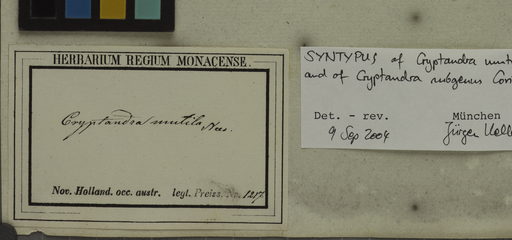 HERBARIUM REGIUM MONACENSE.
Cryptandra mutila Nees.
Nov. Holland. occ. austr. legt. Preiss. No. 1217.
SYNTYPUS of Cryptandra
and of Cryptandra subgenus
Det. - rev. München
9 Sep 2004 Jürgen